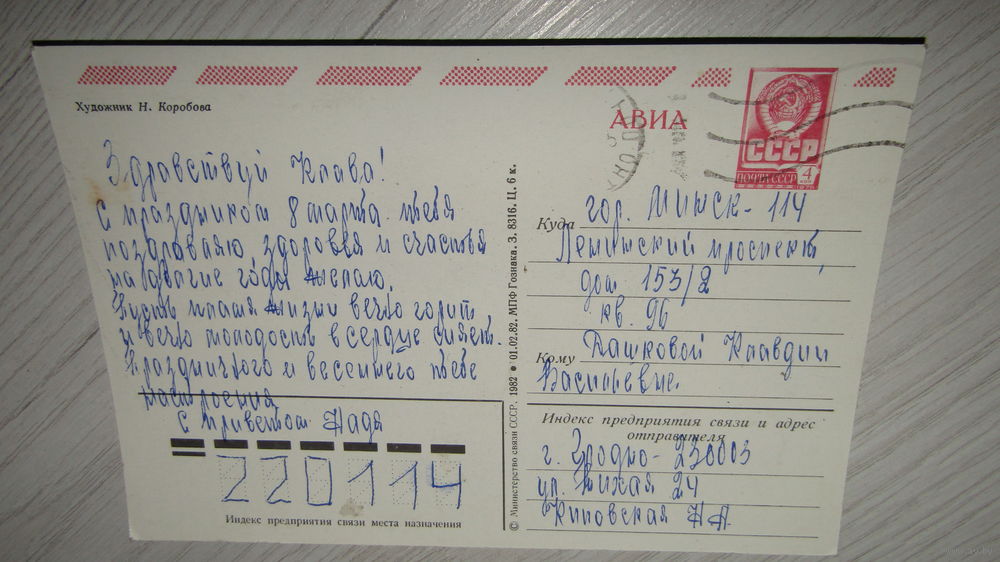 Художник Н. Коробова
АВИА
СССР
ПОЧТА СССР 4
Здравствуй Клава!
С праздником 8 марта тебя
поздравляю здоровья и счастья
на долгие годы желаю.
Пусть пламя жизни вечно горит
и вечно молодость в сердце
Праздничного и весеннего тебе
настроения
С приветом Надя
Куда гор. Минск-114
Ленинский проспект,
дом 153/2
кв. 96
Кому Дашковой Клавдии
Васильевне.
Индекс предприятия связи и адрес
отправителя
г. Гродно- 230003
ул. Тихая 24
Н А.
220114
Индекс предприятия связи места назначения
© Министерство связи СССР. 1982 • 01.02.82. МПФ Гознака. З. 8316. Ц. 6 к.